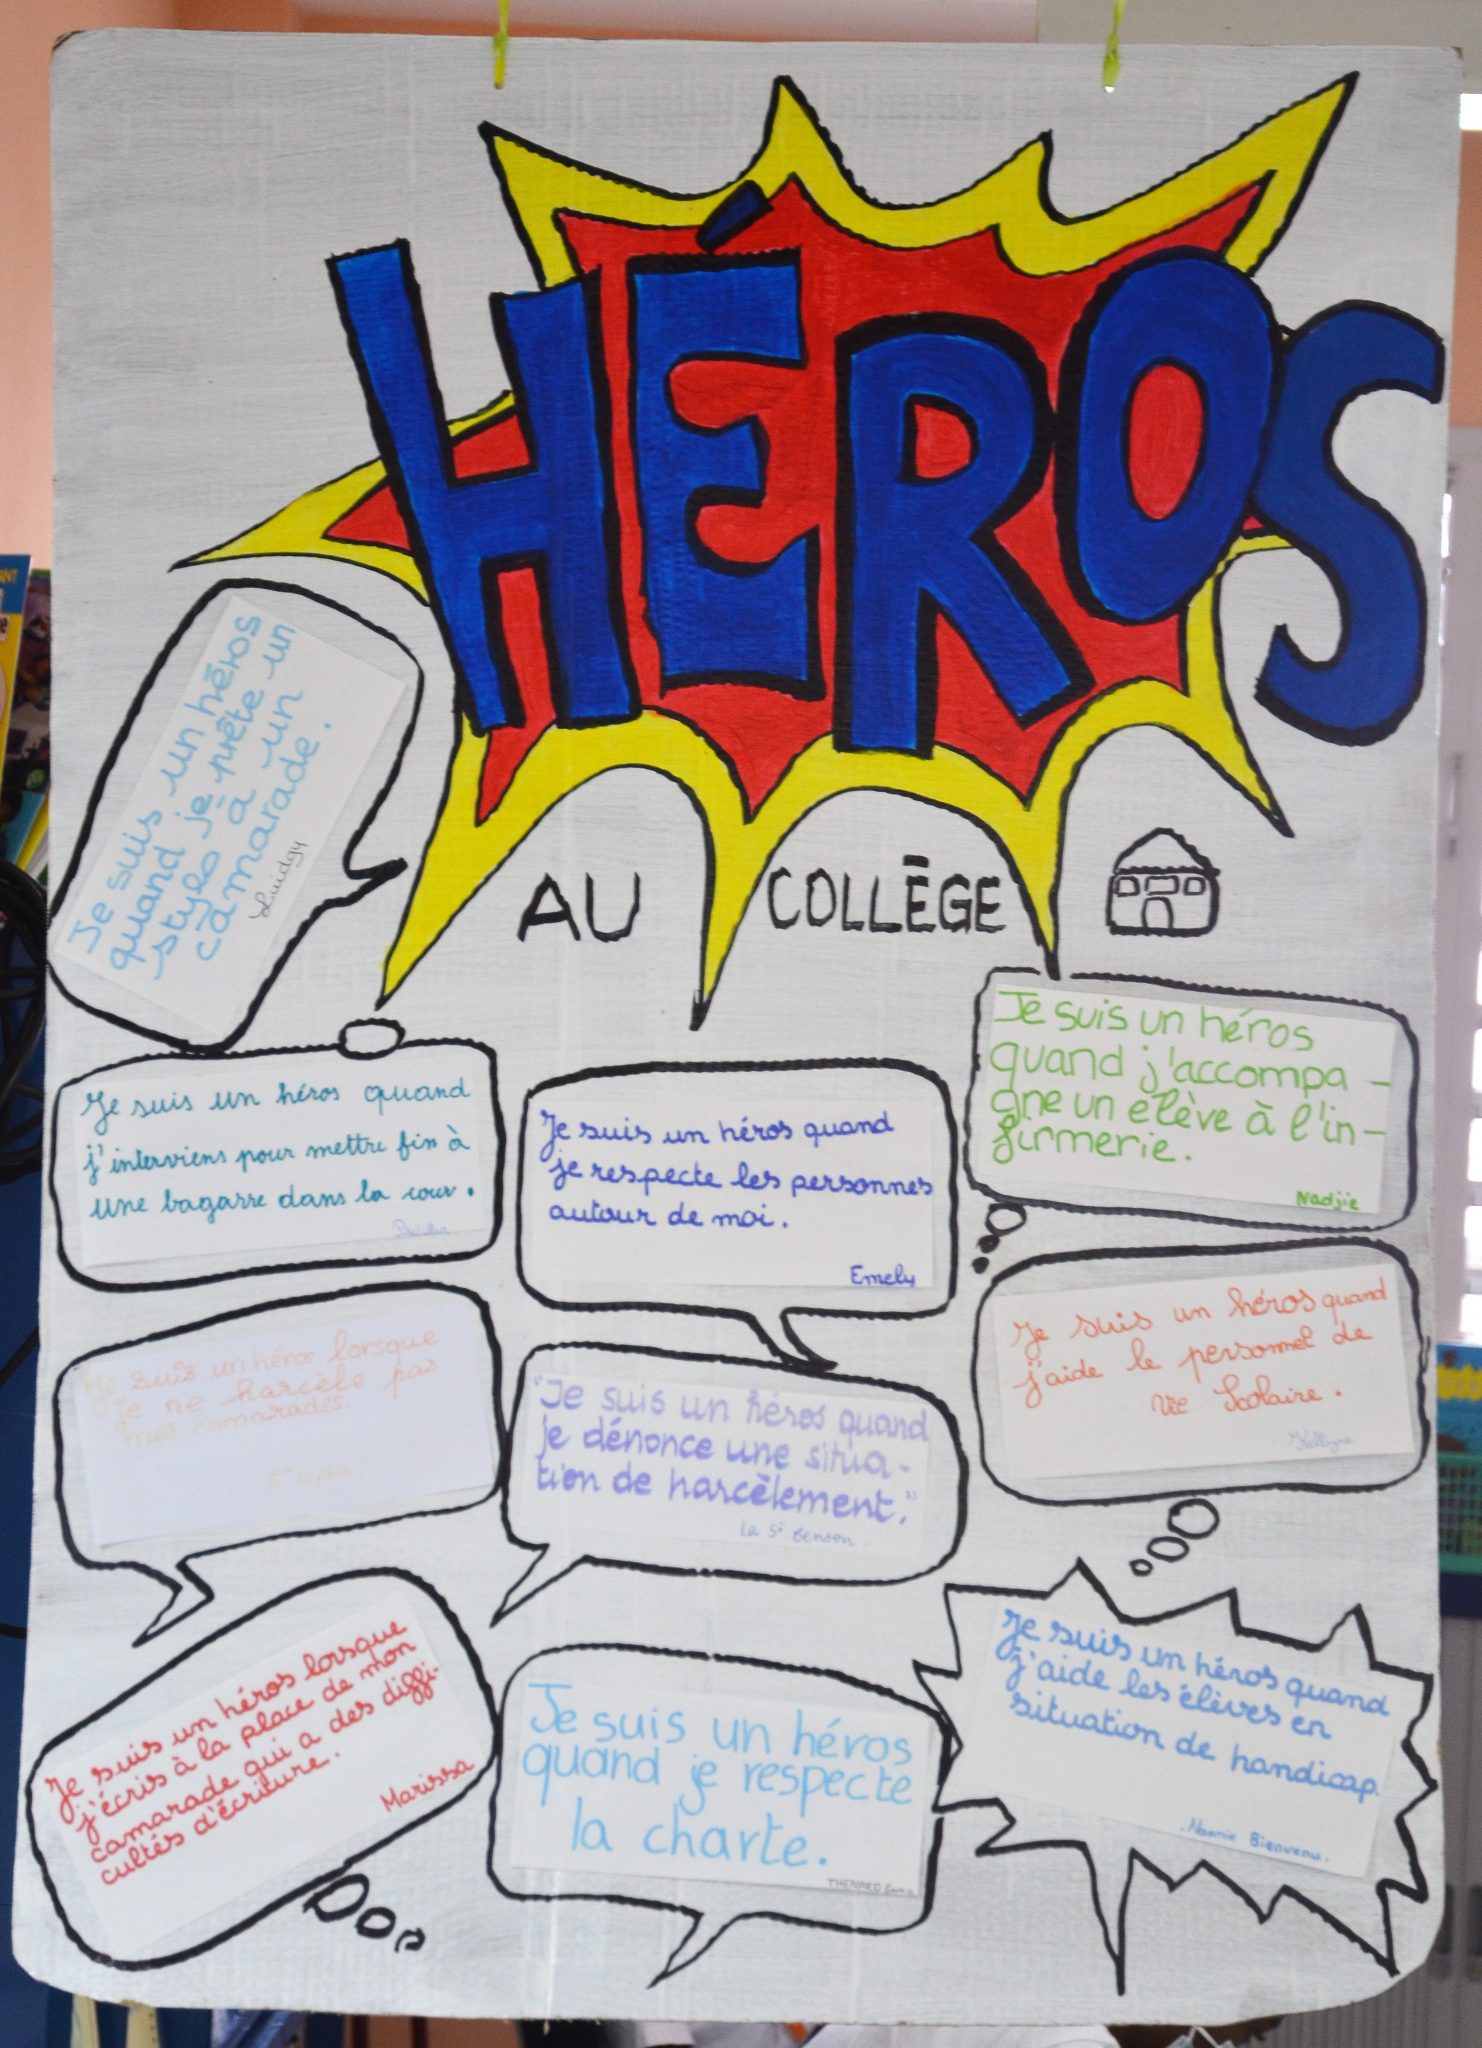 HÉROS
AU COLLÈGE
Je suis un héros
quand je prête un
stylo à un
camarade.
Luidgy
Je suis un héros quand
j'interviens pour mettre fin à
une bagarre dans la cour.
Je suis un héros quand
je respecte les personnes
autour de moi.
Emely
Je suis un héros
quand j'accompa-
gne un elève à l'in-
firmerie.
Nadjïe
Je suis un héros lorsque
je ne harcèle pas
mes camarades.
"Je suis un héros quand
je dénonce une situa-
tion de harcèlement."
La St Benson
Je suis un héros quand
j'aide le personnel de
vie Scolaire.
Kellyna
Je suis un héros lorsque
j'écris à la place de mon
camarade qui a des diffi-
cultés d'écriture.
Marissa
Je suis un héros
quand je respecte
la charte.
THENARD
Je suis un héros quand
j'aide les élèves en
situation de handicap.
Naomie Bienvenu.